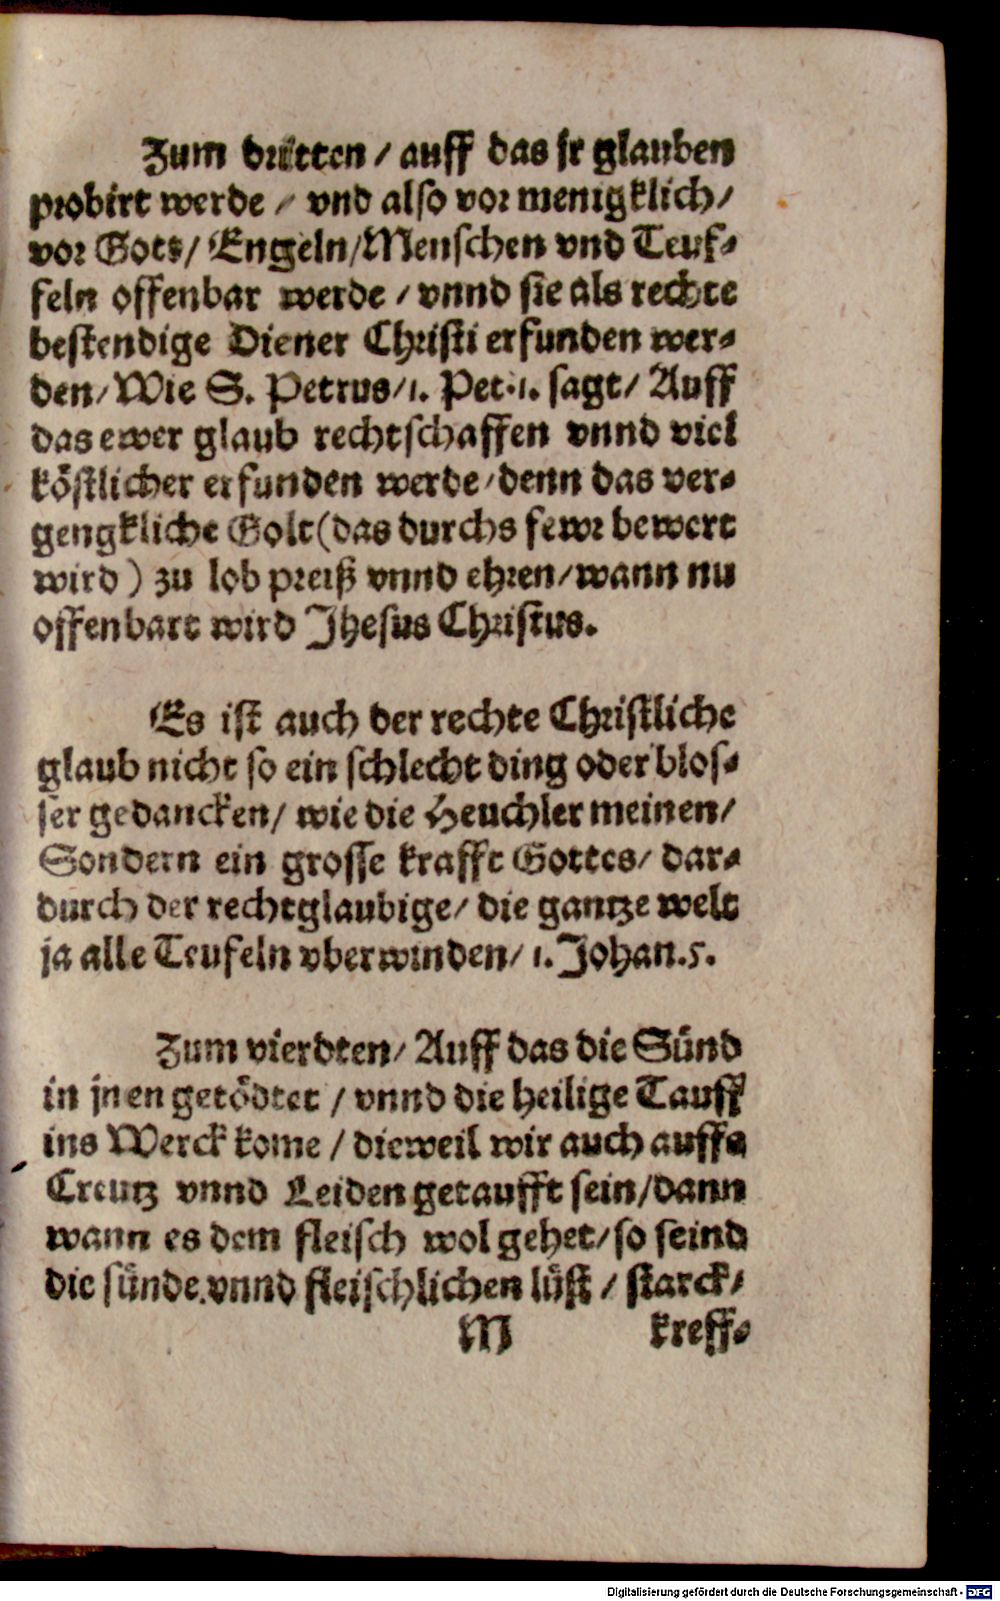 Zum dritten / auff das jr glauben
probirt werde / vnd also vor menigklich /
vor Gott / Engeln / Menschen vnd Teuf-
feln offenbar werde / vnnd sie als rechte
bestendige Diener Christi erfunden wer-
den / Wie S. Petrus / 1. Pet. 1. sagt / Auff
das ewer glaub rechtschaffen vnnd viel
köstlicher erfunden werde / denn das ver-
gengkliche Golt (das durchs fewr bewert
wird) zu lob preiß vnnd ehren / wann nu
offenbart wird Jhesus Christus.
Es ist auch der rechte Christliche
glaub nicht so ein schlecht ding oder blos-
ser gedancken / wie die Heuchler meinen /
Sondern ein grosse krafft Gottes / dar-
durch der rechtglaubige / die gantze welt
ja alle Teufeln vberwinden / 1. Johan. 5.
Zum vierdten / Auff das die Sünd
in jnen getödtet / vnnd die heilige Tauff
ins Werck kome / dieweil wir auch auffs
Creutz vnnd Leiden getaufft sein / dann
wann es dem fleisch wol gehet / so seind
die sünde vnnd fleischlichen lüst / starck /
M kreff-
Digitalisierung gefördert durch die Deutsche Forschungsgemeinschaft - DFG